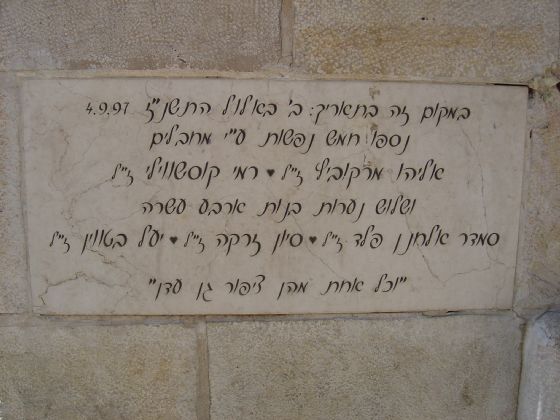 במקום זה בתאריך: ב' באלול התשנ"ז 4.9.97
נספו חמש נפשות ע"י מחבלים
אליהו מרקוביץ ז"ל ♥ רמי קוסשווילי ז"ל
ושלוש נערות בנות ארבע עשרה
סמדר אלחנן פלד ז"ל ♥ סיון זרקה ז"ל ♥ יעל בטווין ז"ל
"וכל אחת מהן ציפור גן עדן"